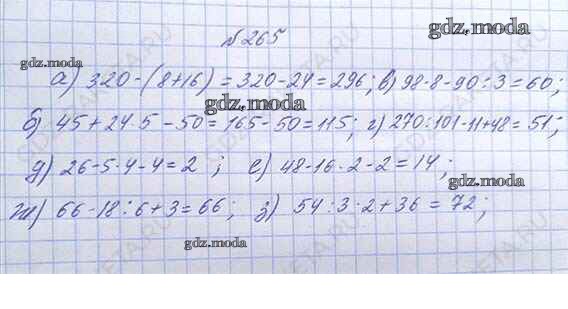 №265
gdz.moda
gdz.moda
а) 320-(8+16) = 320-24 = 296; в) 98-8-90:3=60;
gdz.moda
б) 45+24·5-50=165-50=115; г) 270:101-11+48=51;
д) 26-5·4-4=2 ; е) 48-16·2-2=14;
gdz.moda
ж) 66-18:6+3=66; з) 54:3·2+36 = 72;
gdz.moda